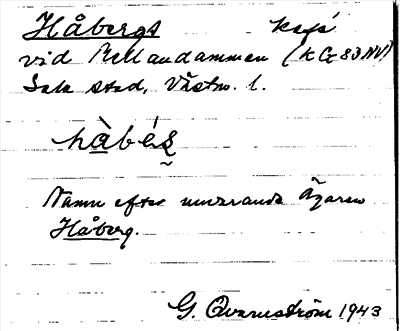 Håbergs kafé
vid Mellandammen (KG 83 NV)
Sala stad, Västm. l.
hàbés
Namn efter nuvarande ägaren
Håberg.
G. Qvarnström 1943